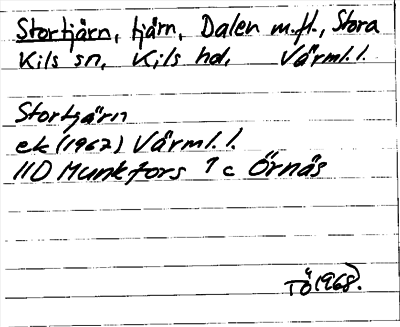 Stortjärn, tjärn, Dalen m.fl., Stora
Kils sn, Kils hd, Värml. l.
Stortjärn
ek (1962) Värml. l.
11D Munkfors 7 c Örnäs
TÖ 1968.